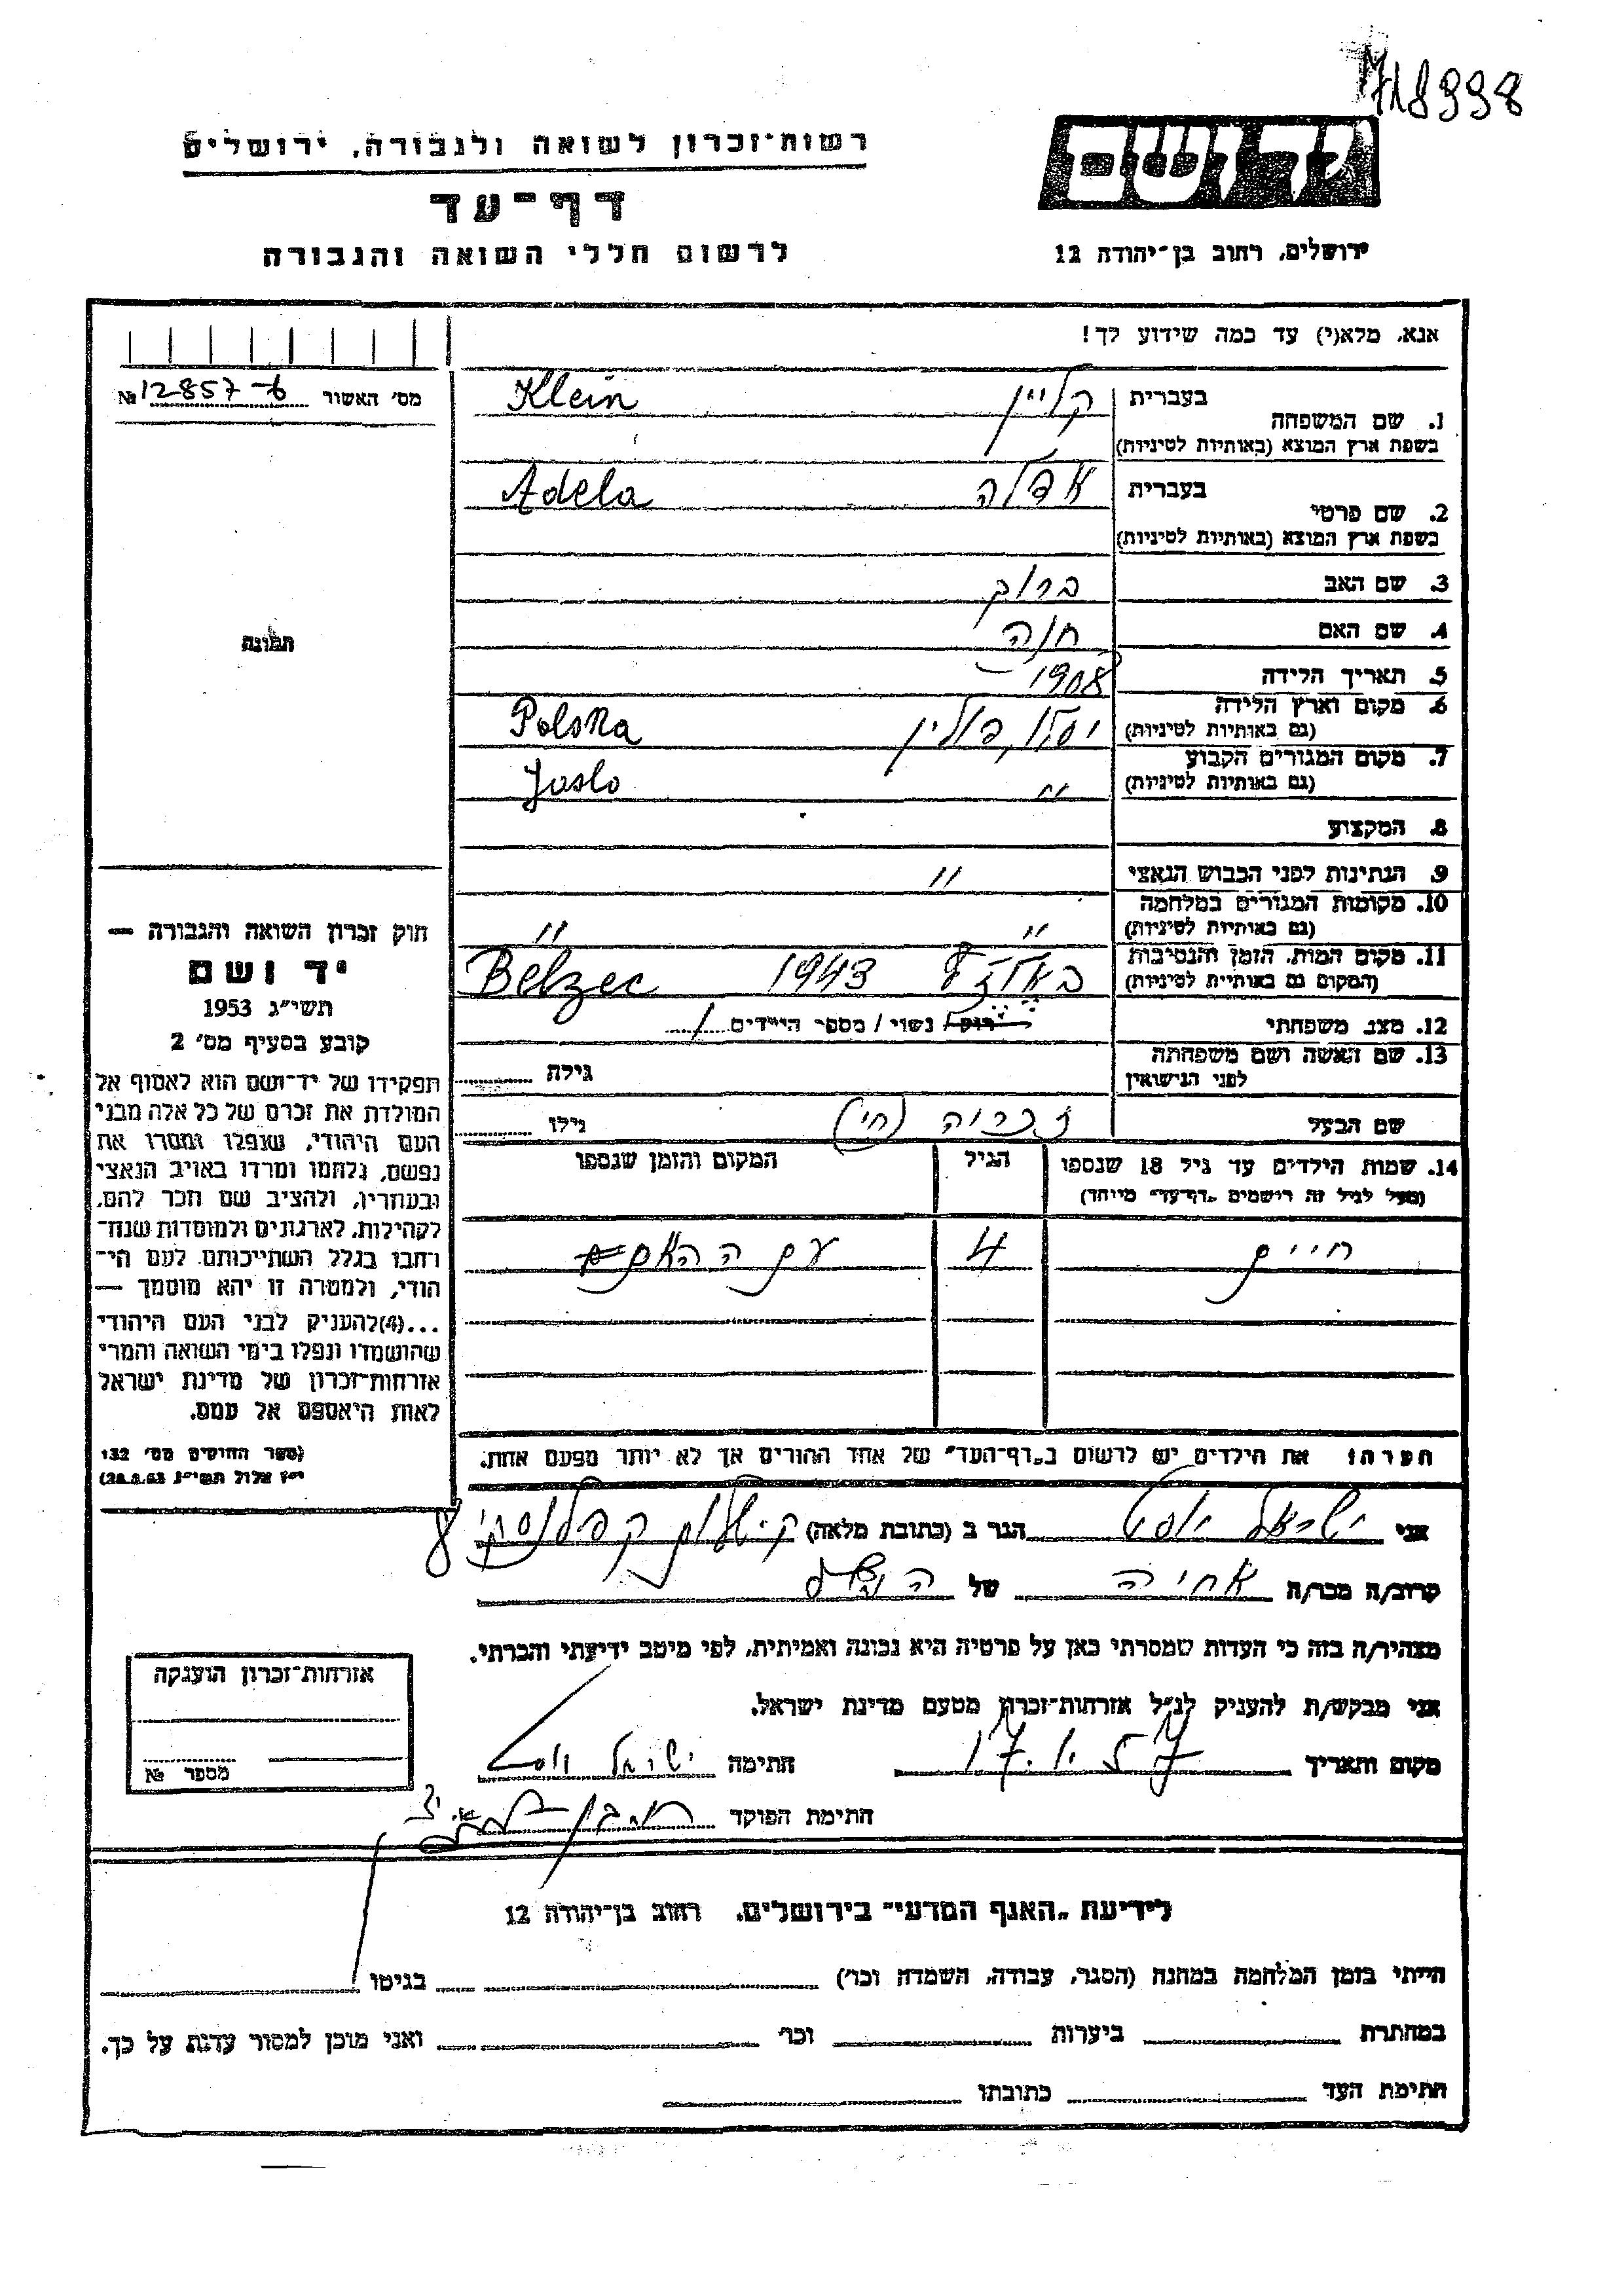 718998
רשות־זכרון לשואה ולגבורה, ירושלים
יד ושם
דף־עד
לרשום חללי השואה והגבורה
ירושלים, רחוב בן־יהודה 12
אנא, מלא(י) עד כמה שידוע לך!
מס׳ האשור 12857-б №
1. שם המשפחה בעברית קליין Klein
בשפת ארץ המוצא (באותיות לטיניות)
2. שם פרטי בעברית אדלה Adela
בשפת ארץ המוצא (באותיות לטיניות)
3. שם האב ברוך
4. שם האם חנה
5. תאריך הלידה 1908
6. מקום וארץ הלידה יסלו, פולין Polska
(גם באותיות לטיניות)
7. מקום המגורים הקבוע " Jaslo
(גם באותיות לטיניות)
8. המקצוע
9. הנתינות לפני הכבוש הנאצי "
10. מקומות המגורים במלחמה " "
(גם באותיות לטיניות)
11. מקום המות, הזמן והנסיבות בלזץ 1943 Belzec
(המקום גם באותיות לטיניות)
12. מצב משפחתי רוק / נשוי / מספר הילדים 1
13. שם האשה ושם משפחתה גילה
לפני הנישואין
שם הבעל זכריה (חי) גילו
14. שמות הילדים עד גיל 18 שנספו הגיל המקום והזמן שנספו
(מעל לגיל זה רושמים „דף־עד״ מיוחד)
חיים 4 עם האם
הערה: את הילדים יש לרשום ב„דף־העד״ של אחד ההורים אך לא יותר מפעם אחת.
תמונה
חוק זכרון השואה והגבורה —
יד ושם
תשי״ג 1953
קובע בסעיף מס׳ 2
תפקידו של יד־ושם הוא לאסוף אל
המולדת את זכרם של כל אלה מבני
העם היהודי, שנפלו ומסרו את
נפשם, נלחמו ומרדו באויב הנאצי
ובעוזריו, ולהציב שם וזכר להם,
לקהילות, לארגונים ולמוסדות שנח־
רבו בגלל השתייכותם לעם הי־
הודי, ולמטרה זו יהא מוסמך —
...(4) להעניק לבני העם היהודי
שהושמדו ונפלו בימי השואה והמרי
אזרחות־זכרון של מדינת ישראל
לאות היאספם אל עמם.
(ספר החוקים מס׳ 132
י״ז אלול תשי״ג 28.8.53)
אני ישראל הגר ב (כתובת מלאה) 8
קרוב/ה מכר/ה של
מצהיר/ה בזה כי העדות שמסרתי כאן על פרטיה היא נכונה ואמיתית, לפי מיטב ידיעתי והכרתי.
אני מבקש/ת להעניק לנ״ל אזרחות־זכרון מטעם מדינת ישראל.
מקום ותאריך חתימה ישראל
חתימת הפוקד
אזרחות־זכרון הוענקה
מספר №
לידיעת „האגף המדעי״ בירושלים, רחוב בן־יהודה 12
הייתי בזמן המלחמה במחנה (הסגר, עבודה, השמדה וכו׳) בגיטו
במחתרת ביערות וכו׳ ואני מוכן למסור עדות על כך.
חתימת העד כתובתו